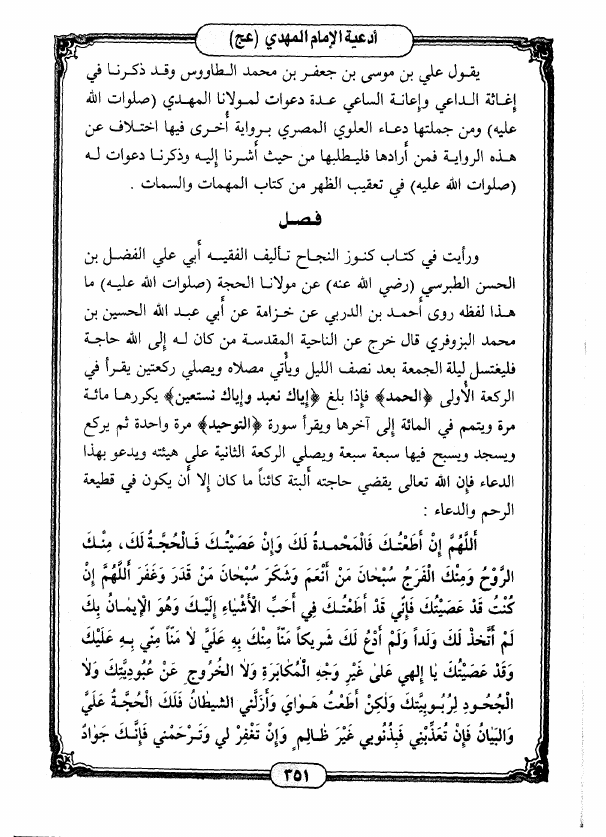 أدعية الإمام المهدي (عج)
يقول علي بن موسى بن جعفر بن محمد الطاووس وقد ذكرنا في
إغاثة الداعي وإعانة الساعي عدة دعوات لمولانا المهدي (صلوات الله
عليه) ومن جملتها دعاء العلوي المصري برواية أُخرى فيها اختلاف عن
هذه الرواية فمن أرادها فليطلبها من حيث أشرنا إليه وذكرنا دعوات له
(صلوات الله عليه) في تعقيب الظهر من كتاب المهمات والسمات .
فصل
ورأيت في كتاب كنوز النجاح تأليف الفقيه أبي علي الفضل بن
الحسن الطبرسي (رضي الله عنه) عن مولانا الحجة (صلوات الله عليه) ما
هذا لفظه روى أحمد بن الدربي عن خزامة عن أبي عبد الله الحسين بن
محمد البزوفري قال خرج عن الناحية المقدسة من كان له إلى الله حاجة
فليغتسل ليلة الجمعة بعد نصف الليل ويأتي مصلاه ويصلي ركعتين يقرأ في
الركعة الأولى ﴿الحمد﴾ فإذا بلغ ﴿إياك نعبد وإياك نستعين﴾ يكررها مائة
مرة ويتمم في المائة إلى آخرها ويقرأ سورة ﴿التوحيد﴾ مرة واحدة ثم يركع
ويسجد ويسبح فيها سبعة سبعة ويصلي الركعة الثانية على هيئته ويدعو بهذا
الدعاء فإن الله تعالى يقضي حاجته ألبتة كائناً ما كان إلا أن يكون في قطيعة
الرحم والدعاء :
أَللَّهُمَّ إِنْ أَطَعْتُكَ فَالْمَحْمِدةُ لَكَ وَإِنْ عَصَيْتُكَ فَالْحُجَّةُ لَكَ، مِنْكَ
الرَّوْحُ وَمِنْكَ الْفَرَجُ سُبْحَانَ مَنْ أَنْعَمَ وَشَكَرَ سُبْحَانَ مَنْ قَدَرَ وَغَفَرَ أَللَّهُمَّ إِنْ
كُنْتُ قَدْ عَصَيْتُكَ فَإِنّي قَدْ أَطَعْتُكَ فِي أَحَبِّ الأَشْيَاءِ إِلَيْكَ وَهُوَ الإِيمَانُ بِكَ
لَمْ أَتَّخِذْ لَكَ وَلَداً وَلَمْ أَدْعُ لَكَ شَرِيكاً مَنّاً مِنْكَ بِهِ عَلَيَّ لاَ مَنّاً مِنّي بِهِ عَلَيْكَ
وَقَدْ عَصَيْتُكَ يَا إِلهي عَلىٰ غَيْرِ وَجْهِ الْمُكَابَرَةِ وَلاَ الخُرُوجِ عَنْ عُبُودِيَّتِكَ وَلاَ
الْجُحُودِ لِرُبُوبِيَّتِكَ وَلٰكِنْ أَطَعْتُ هَوَايَ وَأَزَلَّنِي الشيطَانُ فَلَكَ الْحُجَّةُ عَلَيَّ
وَالْبَيَانُ فَإِنْ تُعَذِّبْنِي فَبِذُنُوبِي غَيْرَ ظَالِمٍ وَإِنْ تَغْفِرْ لي وَتَرْحَمْني فَإِنَّكَ جَوَادٌ
٣٥١